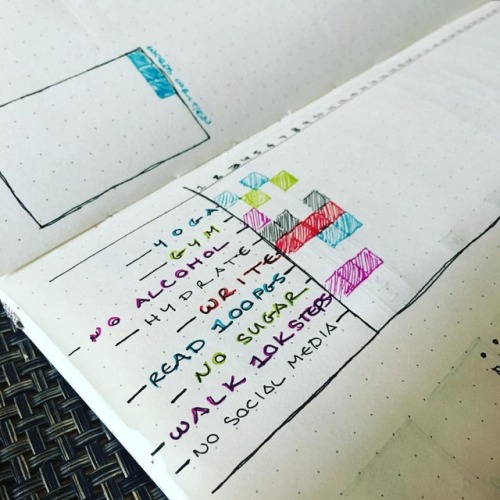 1 2 3 4 5 6 7 8
YOGA
GYM
NO ALCOHOL
HYDRATE
WRITE
READ 100PGS
NO SUGAR
WALK 10K STEPS
NO SOCIAL MEDIA